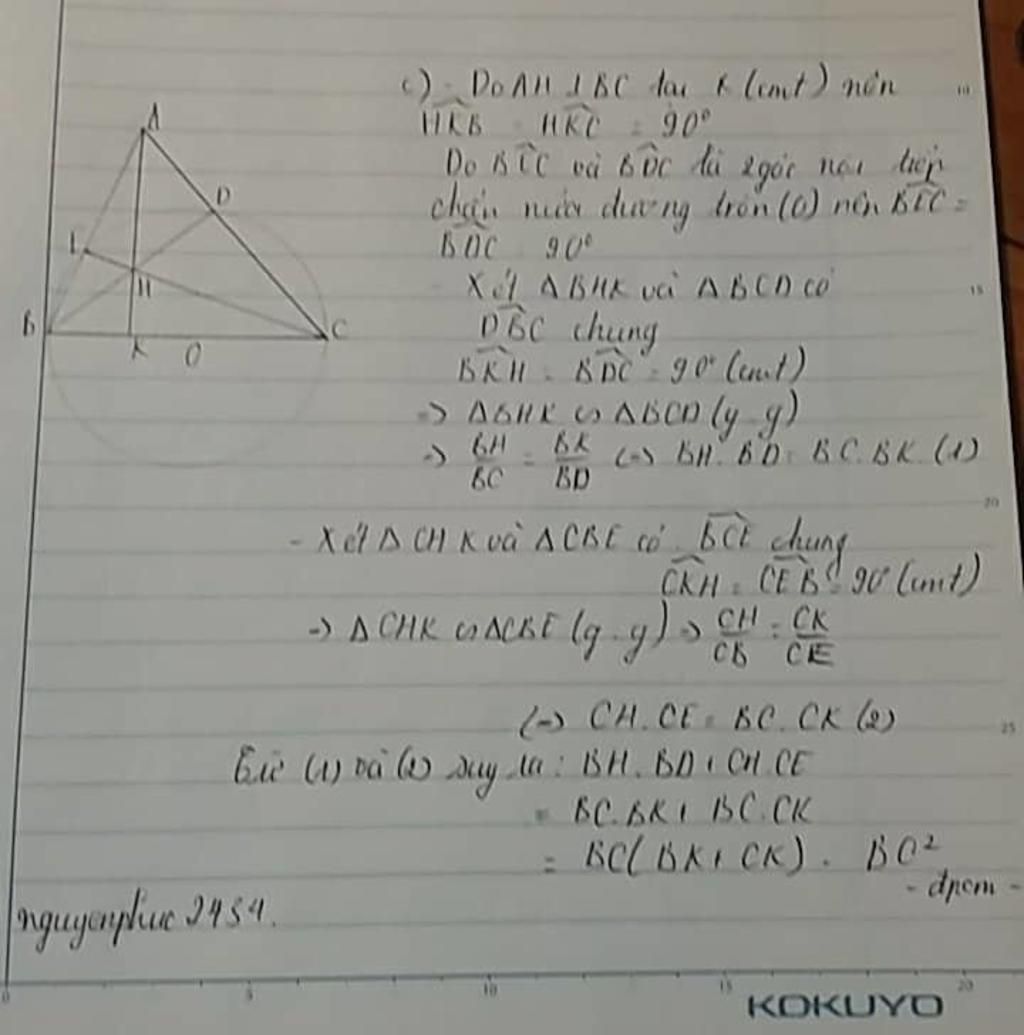 A
D
E
H
B
C
K
O
c) - Do AH ⊥ BC tại K (cmt) nên
HKB = HKC = 90°
Do BEC và BDC là 2 góc nội tiếp
chắn nửa đường tròn (O) nên BEC =
BDC = 90°
- Xét Δ BHK và Δ BCD có
DBC chung
BKH = BDC = 90° (cmt)
=> Δ BHK ∽ Δ BCD (g-g)
=> BH/BC = BK/BD <=> BH.BD = BC.BK (1)
- Xét Δ CHK và Δ CBE có BCE chung
CKH = CEB = 90° (cmt)
=> Δ CHK ∽ Δ CBE (g-g) => CH/CB = CK/CE
<=> CH.CE = BC.CK (2)
Từ (1) và (2) suy ra: BH.BD + CH.CE
= BC.BK + BC.CK
= BC(BK + CK) = BC²
- đpcm -
nguyenphuc2454.
10
15
20
25
0
5
10
15
20
KOKUYO